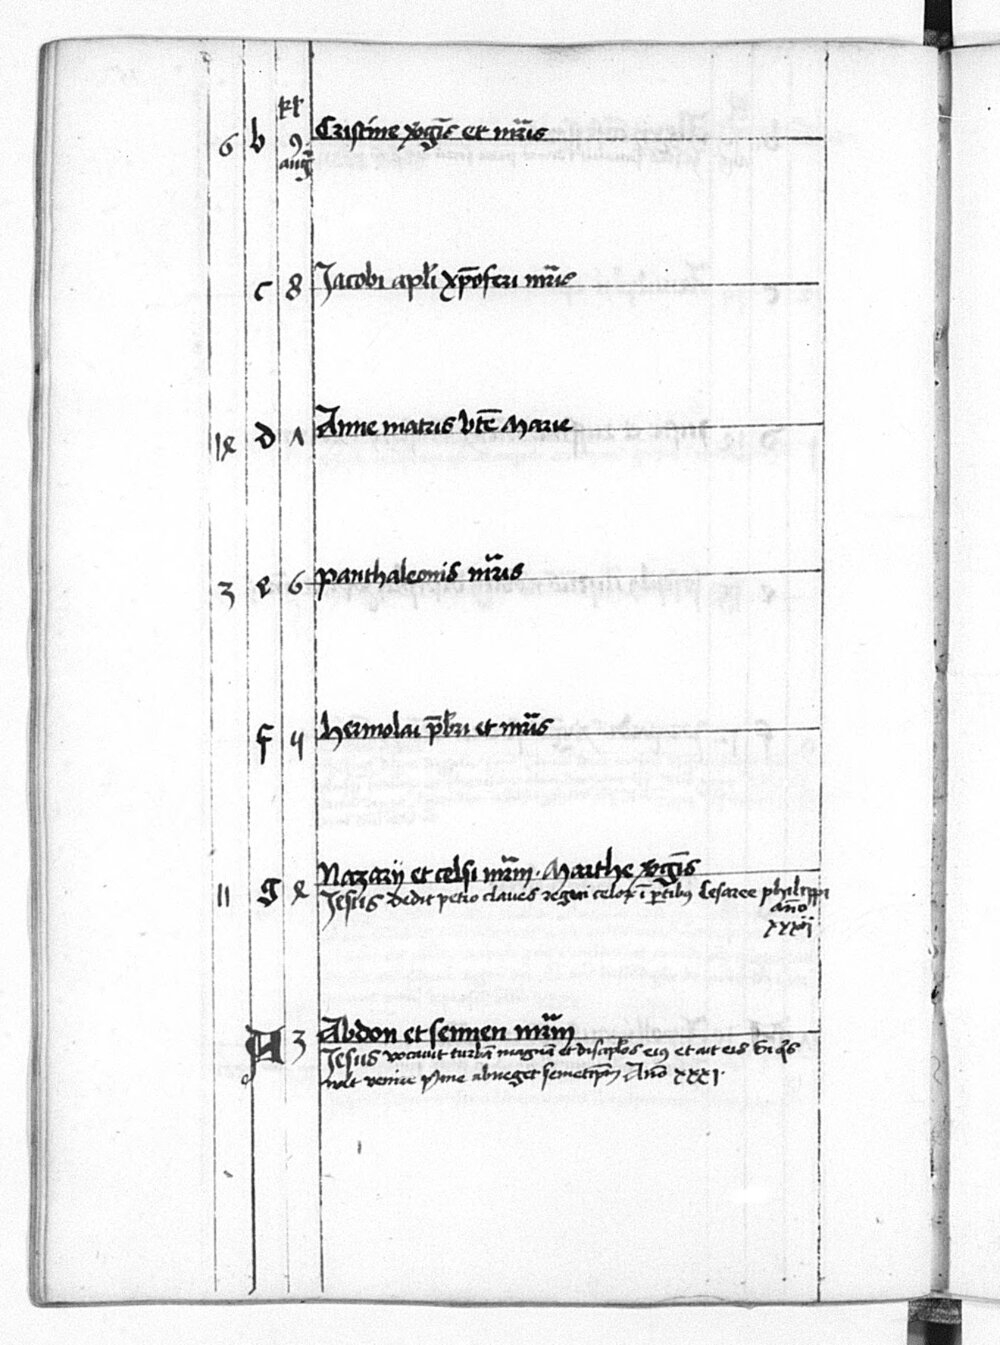 kł
6 b 9 Cristine v̄gis et mr̄is
auḡ
c 8 Jacobi apli xp̄oferi mr̄is
1e d 7 Anne matris btē Marie
3 e 6 panthaleonis mr̄is
f 4 hermolai p̄bri et mr̄is
11 g e Nazarij et celsi mr̄m. Marthe v̄gis
Jesus dedit petro claues regni celoꝝ ī ꝑtibꝰ Cesaree philippi
año
xxxij
A 3 Abdon et sennen mr̄m
Jesus vocauit turbā magnā et discipl̄os eiꝰ et ait eis Si q̄s
vult venire p⁹ me abneget semetip̄m Año xxxi.